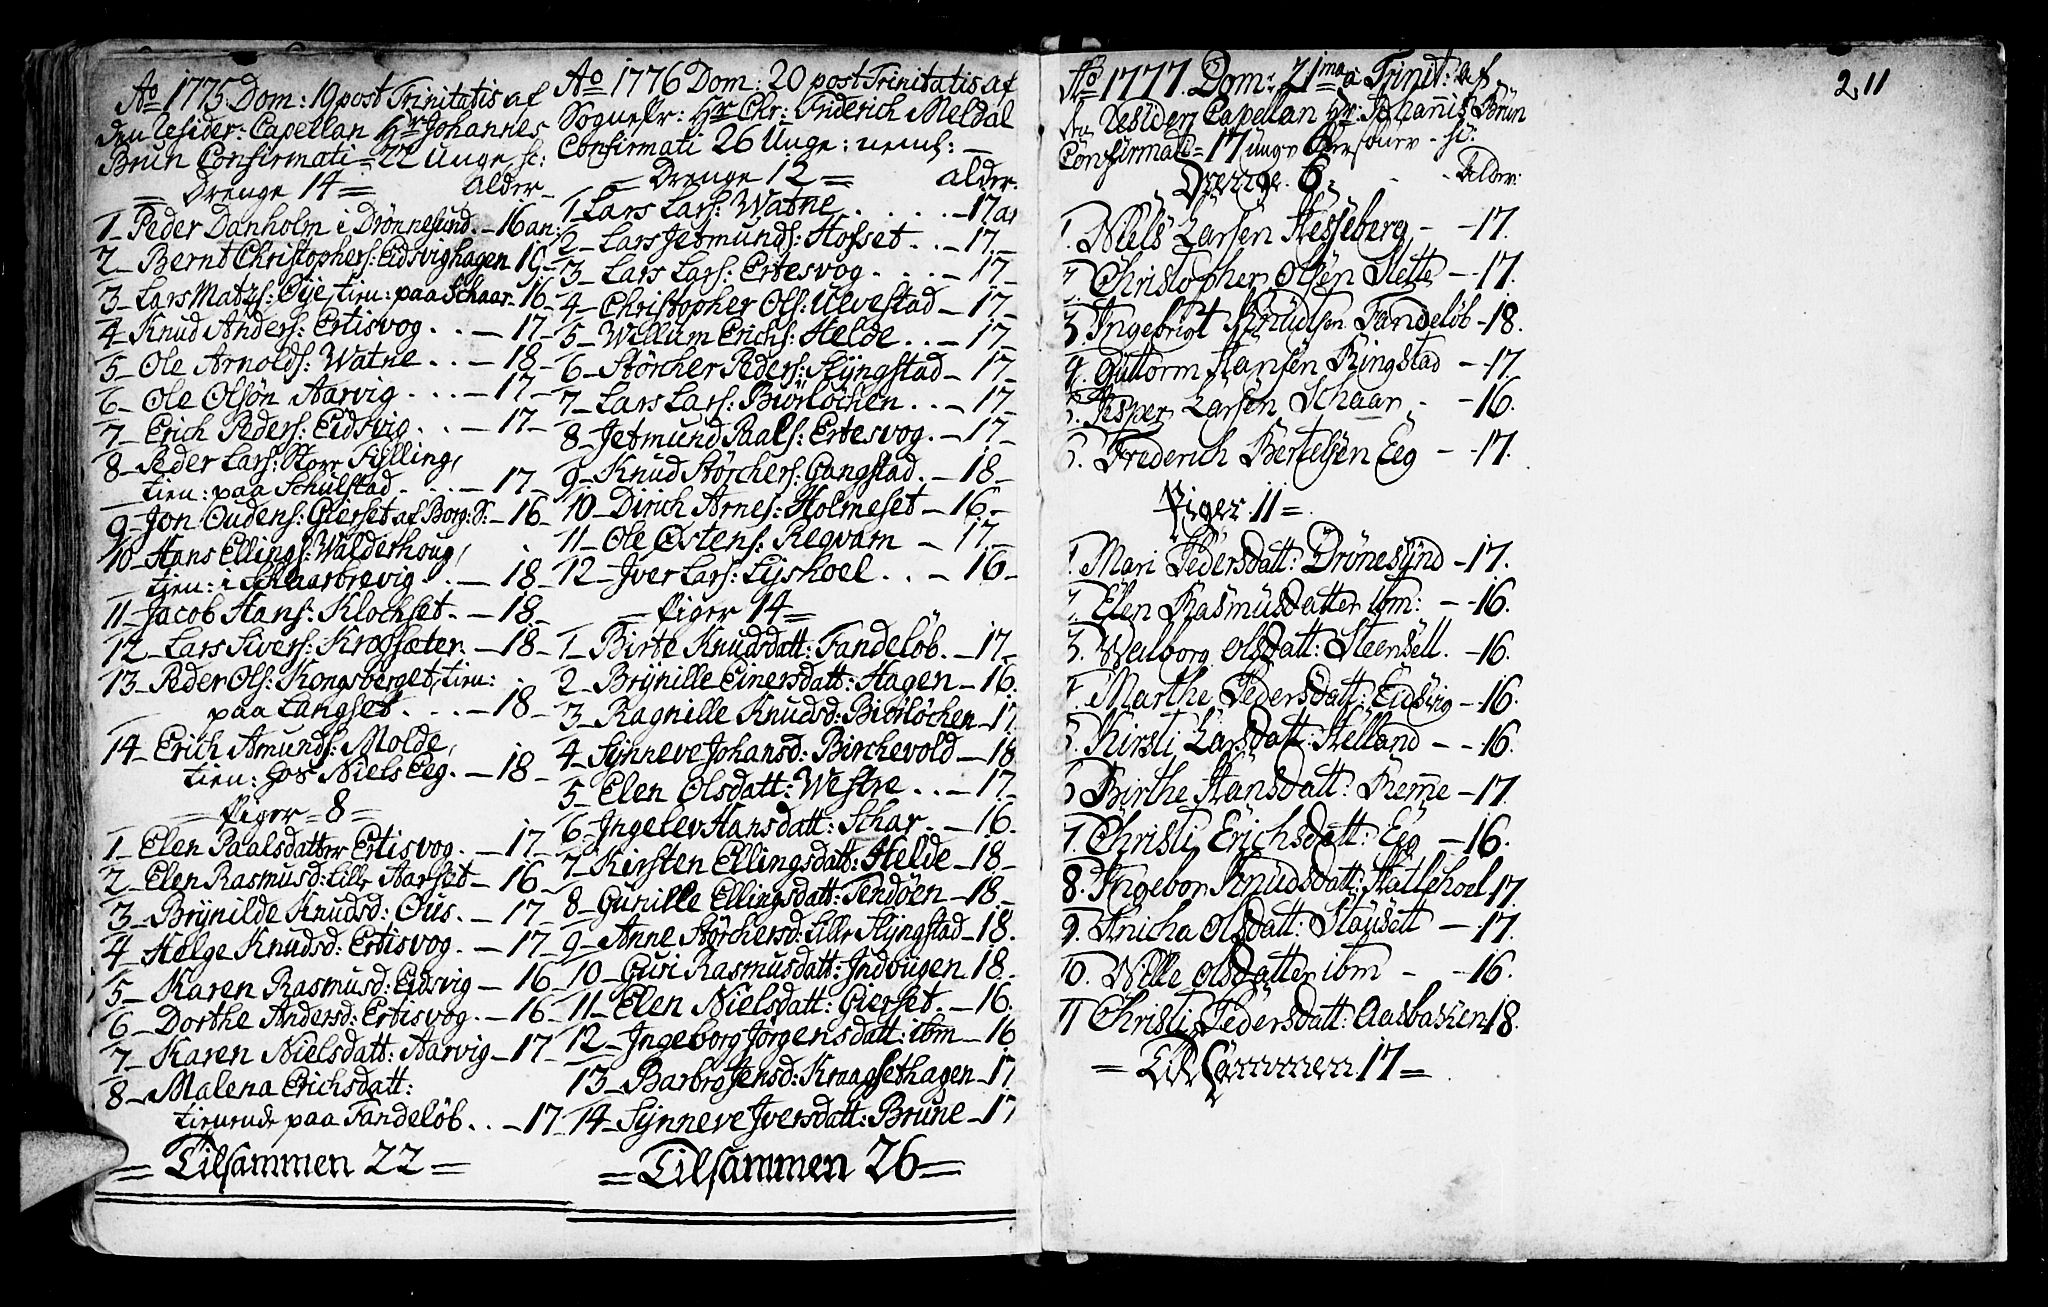 Ao 1775 Dom: 19 post Trinitatis af
den Resider: Capellan Hr Johannes
Brun Confirmati = 22 Unge, sc:
= Drenge 14 = alder
1_ Peder Danholm i Drönnesund. _ 16 an:
2_ Bernt Christophers: Eidsvighagen 19_
3_ Lars Matzs: Öye, tien: paa Schaar. 16_
4_ Knud Anders: Ertisvog . . _ 17_
5_ Ole Arnolds: Watne . . _ 18_
6_ Ole Olsön Aarvig . . . _ 17_
7_ Erich Peders: Eidsvig . . _ 17_
8_ Peder Lars: Storr Fylling,
tien: paa Schulstad . . . _ 17_
9_ Jon Oudens: Gierset af Borg: S: _ 16_
10_ Hans Ellings: Walderhoug,
tien: i Schaarbrevig . . _ 18_
11_ Jacob Hans: Klochset. _ 18_
12_ Lars Sivers: Kragsæter. _ 18_
13_ Peder Ols: Kongsberget, tien:
paa Langset . . . _ 18_
14_ Erich Amunds: Molde,
tien: hos Niels Eeg. _ 18_
= Piger = 8 =
1_ Elen Paalsdatter Ertisvog. _ 17_
2_ Elen Rasmusd: Lille Aarset _ 16_
3_ Brynilde Knudsd: Öus. _ 17_
4_ Helge Knudsd: Ertisvog. _ 17_
5_ Karen Rasmusd: Eidsvig _ 16_
6_ Dorthe Andersd: Ertisvog. _ 16_
7_ Karen Nielsdatt: Aarvig _ 17_
8_ Malena Erichsdatt:
tienende paa Fandelöb . . _ 17_
= Tilsammen 22 =
Ao 1776 Dom: 20 post Trinitatis af
Sognepr: Hr Chr: Friderich Meldal
Confirmati 26 Unge: neml: _
= Drenge 12 = alder:
1_ Lars Lars: Watne . . . . _ 17 a:
2_ Lars Jetmunds: Hofset . . _ 17_
3_ Lars Lars: Ertesvog . . . _ 17_
4_ Christopher Ols: Ulvestad _ 17_
5_ Willum Erichs: Helde . . _ 17_
6_ Störcher Peders: Slyngstad _ 17_
7_ Lars Lars: Biörlöchen . . _ 17_
8_ Jetmund Paals: Ertesvog. _ 17_
9_ Knud Störchers: Gangstad. _ 18_
10_ Dirich Arnes: Holmeset _ 16_
11_ Ole Östens: Reqvam _ 17_
12_ Jver Lars: Lyshoel . . _ 16_
= Piger 14 =
1_ Birte Knudsdatt: Fandelöb. _ 17_
2_ Brynille Einersdatt: Hagen _ 16.
3_ Ragnille Knudsd: Biörlöchen _ 17
4_ Synneve Johansd: Birchevold _ 18
5_ Elen Olsdatt: Westre . . _ 17_
6_ Ingelev Hansdatt: Schar. _ 16_
7_ Kirsten Ellingsdatt: Helde _ 18_
8_ Gunille Ellingsdatt: Tendöen _ 18_
9_ Anne Störchersd: Lille Slyngstad _ 18.
10_ Guri Rasmusdatt: Indbugen 18_
11_ Elen Nielsdatt: Gierset. _ 16.
12_ Ingeborg Jörgensdatt: ibm _ 16
13_ Barbro Jensd: Kraagsethagen _ 17
14_ Synneve Iversdatt: Brune _ 17
= Tilsammen 26 =
2,11
Ao 1777. Dom: 21ma a Trinit: af
den Residen Capellan Hr: Johanis Brün
Confirmati = 17 unge Personer - sc:
Drenge. 6. - - Alder:
1. Niels Larsen Hesseberg - - 17.
2. Christopher Olsen Slette - 17.
3. Ingebrigt Knudtsen Fandelöb - 18.
4. Guttorm Hansen Ringstad - 17.
5. Jesper Larsen Schaar - - 16.
6. Frederich Bertelsen Eeg - - 17.
Piger 11 =
1. Mari Pedersdatt: Drönesynd - 17.
2. Elen Rasmusdatter ibm: - - 16.
3. Walborg Olsdatt: Steensell. - 16.
4. Marthe Pedersdatt: Eidsvig - 16.
5. Kirsti Larsdatt: Helland - - 16.
6 Birthe Hansdatt: Reme - 17.
7. Christi Erichsdatt: Eeg - 16.
8. Ingebor Knudsdatt: Hattlehoel 17.
9. Anicha Olsdatt: Stausett - 17.
10. Nille Olsdatter ibm - - 16.
11 Christi Pedersdatt: Aasbaken 18.
= Tilsammen 17 =